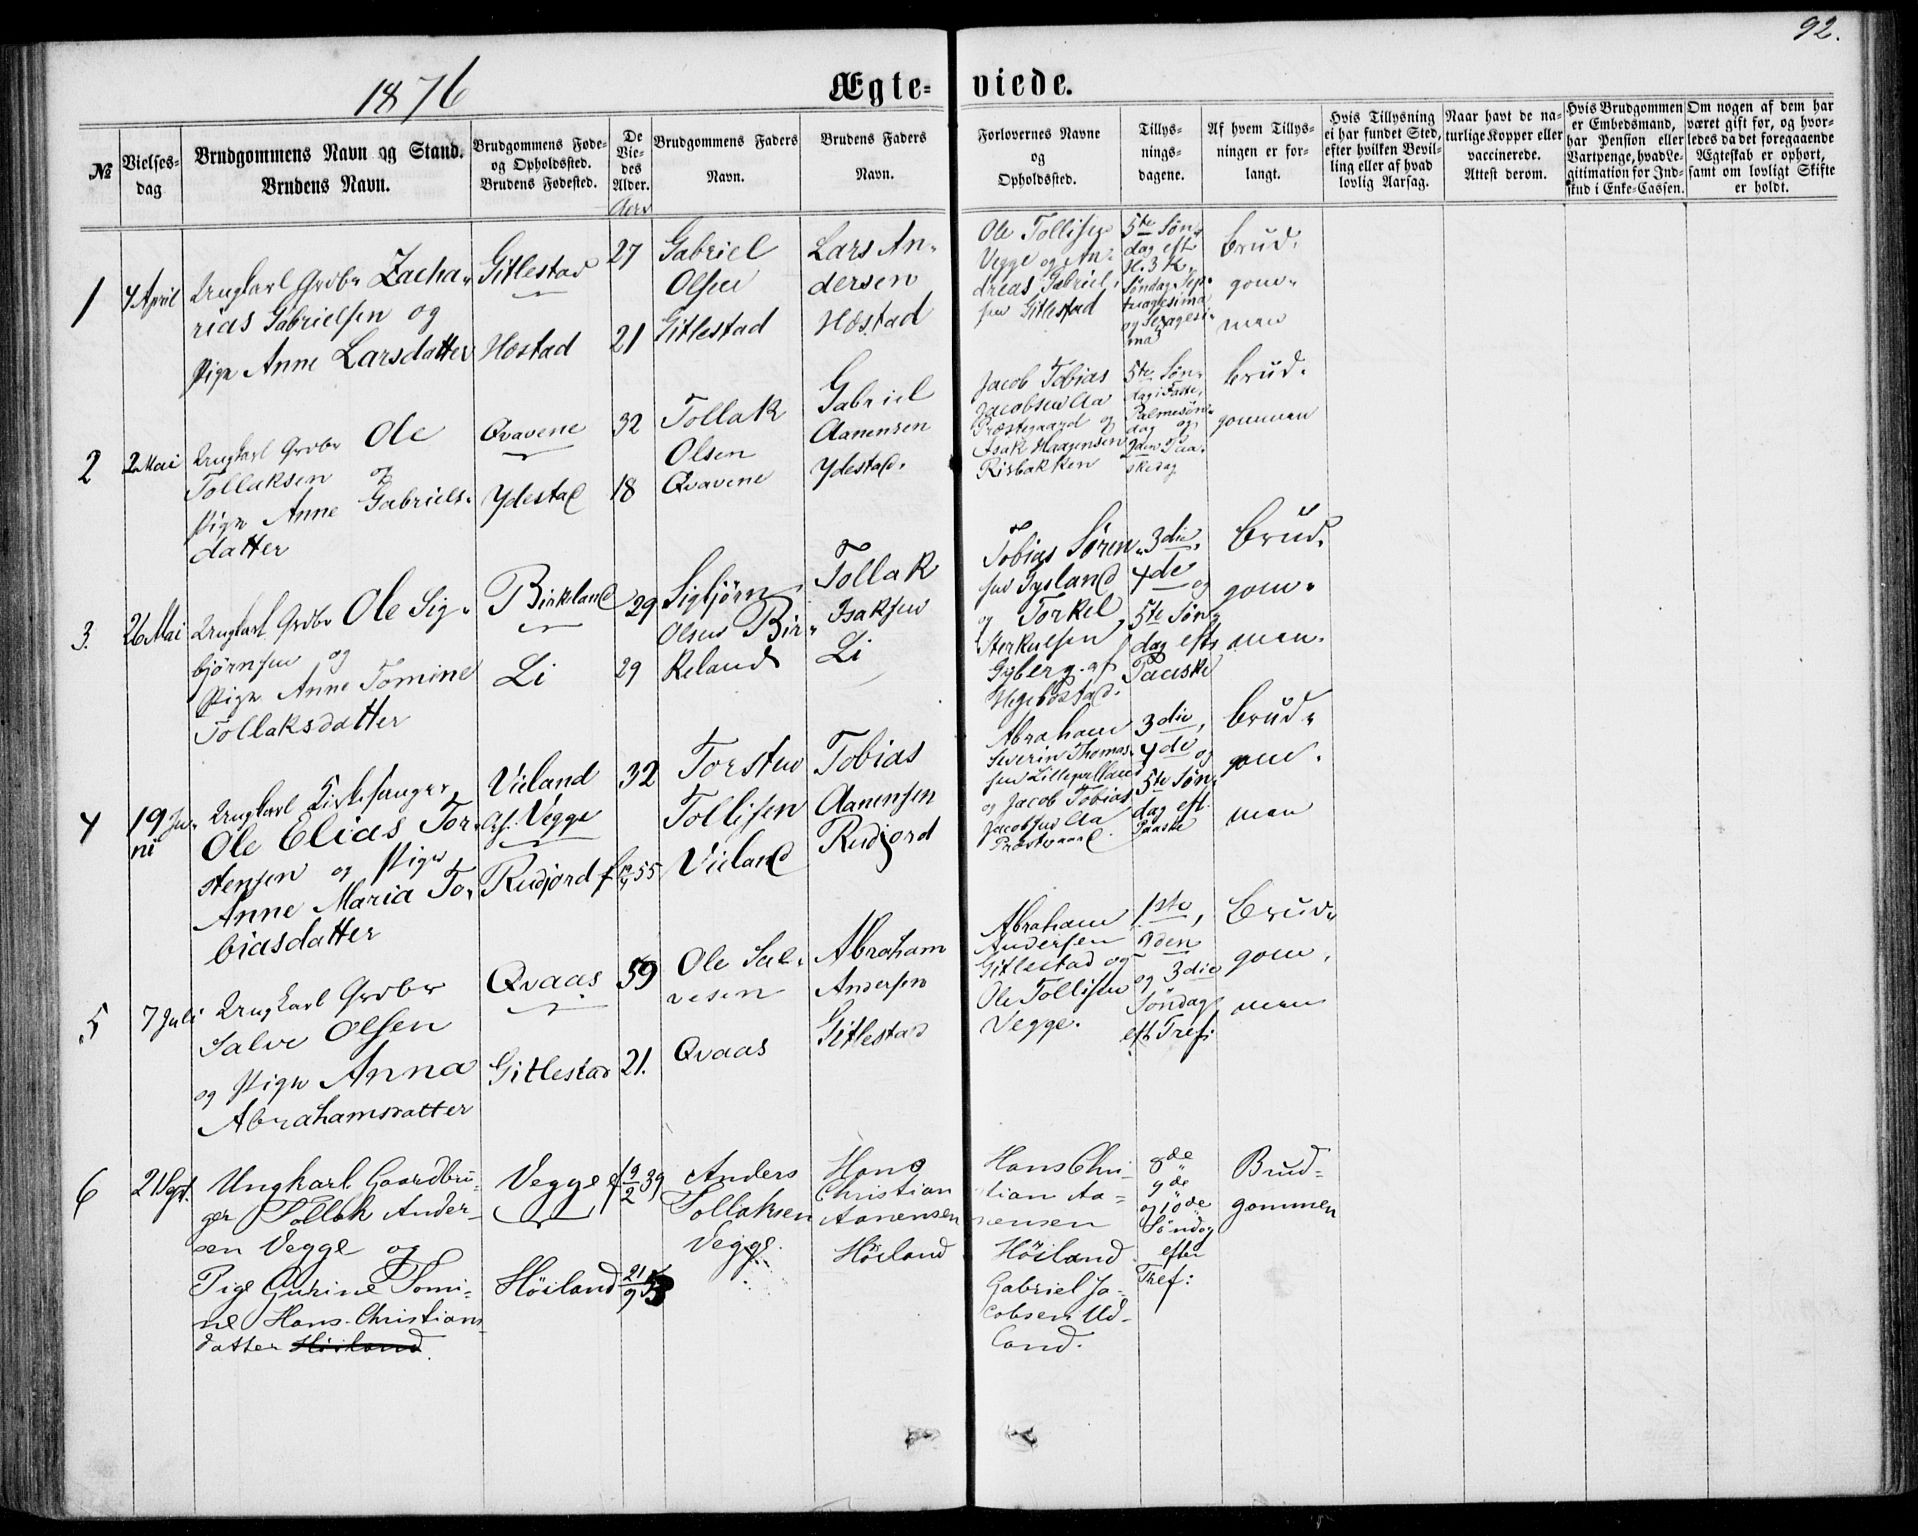 92.
1876
Ægteviede.
№
Vielsesdag
Brudgommens Navn og Stand.
Brudens Navn.
Brudgommens Føde- og Opholdssted.
Brudens Fødested.
De Viedes Alder.
Brudgommens Faders Navn.
Brudens Faders Navn.
Forlovernes Navne og Opholdssted.
Tillysningsdagene.
Af hvem Tillysningen er forlangt.
Hvis Tillysning ei har fundet Sted, efter hvilken Bevilling eller af hvad lovlig Aarsag.
Naar havt de naturlige Kopper eller vaccinerede. Attest derom.
Hvis Brudgommen er Embedsmand, har Pension eller Vartpenge, hvad Legitimation for Indskud i Enke-Cassen.
Om nogen af dem har været gift før, og hvorledes da det foregaaende Ægteskab er ophørt, samt om lovligt Skifte er holdt.
1
4 April
Ungkarl Grdbr Zacha-
rias Gabrielsen og
Pige Anne Larsdatter
Gitlestad
Hæstad
27
21
Gabriel
Olsen
Gitlestad
Lars An-
dersen
Hæstad
Ole Tollisen
Vegge og An-
dreas Gabriel-
sen Gitlestad
5te Søn-
dag eft
H. 3 K.,
Søndag Sep-
tuagesima
og Sexagesi-
ma
Brud-
gom-
men
2
2 Mai
Ungkarl Grdbr Ole
Tollaksen og
Pige Anne Gabriels-
datter
Qvavene
Ydestad
32
18
Tollak
Olsen
Qvavene
Gabriel
Aanensen
Ydestad.
Jacob Tobias
Jacobsen Aa
Præstegaard og
Isak Haagensen
Risbakken
5te Søn-
dag i Faste,
Palmesøn-
dag og
2den Paa-
skedag
Brud-
gommen
3.
26 Mai
Ungkarl Grdbr Ole Sig-
bjørnsen og
Pige Anne Tomine
Tollaksdatter
Birkeland
Li
29
29
Sigbjørn
Olsen Bir-
keland
Tollak
Isaksen
Li
Tobias Søren-
sen Tysland
og Torkel
Sterkulsen
Gyberg af
Hegebostad.
3die,
4de og
5te Søn-
dag eft
Paaske
Brud-
gom-
men.
4
19 Ju-
ni
Ungkarl Kirkesanger
Ole Elias Tor-
stensen og Pige
Anne Maria To-
biasdatter
Vieland
af Vegge
Rudjord
32
55
Torsten
Tollisen
Vieland
Tobias
Aanensen
Rudjord
Abraham
Severin Thomas-
sen Lillepalland
og Jacob Tobias
Jacobsen Aa
Præstegaard.
3die,
4de og
5te Søn-
dag eft.
Paaske
Brud-
gom-
men
5
7 Juli
Ungkarl Grdbr
Salve Olsen
og Pige Anna
Abrahamsdatter
Qvaas
Gitlestad
59
21.
Ole Sal-
vesen
Qvaas
Abraham
Andersen
Gitlestad
Abraham
Andersen
Gitlestad og
Ole Tollisen
Vegge.
1ste,
2den
og 3die
Søndag
eft Tref:
Brud-
gom-
men
6
21 Sept.
Ungkarl Gaardbru-
ger Tollak Ander-
sen Vegge og
Pige Gurine Tomi-
ne Hans-Christians-
datter Höiland
Vegge
Höiland
f 9/2 39
21/9 53
Anders
Tollaksen
Vegge.
Hans
Christian
Aanensen
Höiland
Hans Chri-
stian Aa-
nensen
Höiland
Gabriel Ja-
cobsen Ud-
land.
8de
9de
og 10de
Söndag
efter
Tref:
Brud-
gommen